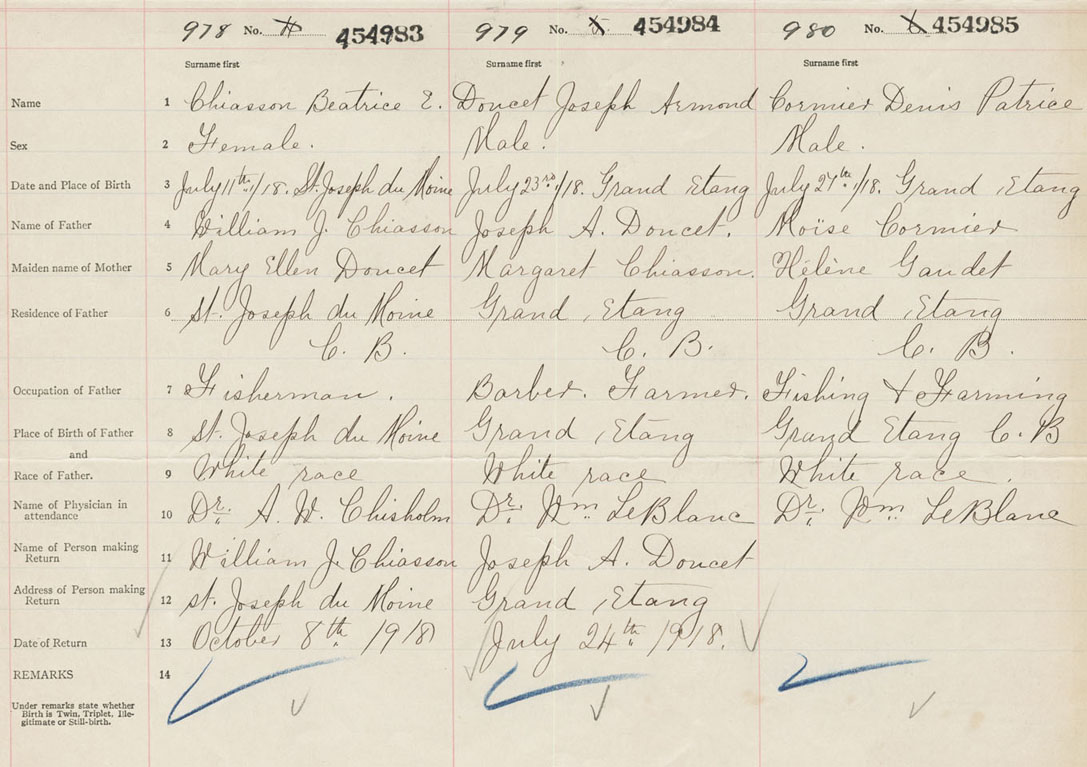 978 No. 454983 979 No. 454984 980 No. 454985
Surname first Surname first Surname first
Name 1 Chiasson Beatrice E. Doucet Joseph Armond Cormier Denis Patrice
Sex 2 Female. Male. Male.
Date and Place of Birth 3 July 11th/18. St. Joseph du Moine July 23rd/18. Grand Etang July 27th/18. Grand Etang
Name of Father 4 William J. Chiasson Joseph A. Doucet. Moïse Cormier
Maiden name of Mother 5 Mary Ellen Doucet Margaret Chiasson. Hélène Gaudet
Residence of Father 6 St. Joseph du Moine Grand Etang Grand Etang
C. B. C. B. C. B.
Occupation of Father 7 Fisherman. Barber. Farmer. Fishing & Farming
Place of Birth of Father 8 St. Joseph du Moine Grand Etang Grand Etang C. B
and
Race of Father. 9 White race White race White race.
Name of Physician in
attendance 10 Dr. A. W. Chisholm Dr. Wm LeBlanc Dr. Wm. LeBlanc
Name of Person making
Return 11 William J. Chiasson Joseph A. Doucet
Address of Person making
Return 12 St. Joseph du Moine Grand Etang
Date of Return 13 October 8th 1918 July 24th 1918.
REMARKS 14
Under remarks state whether
Birth is Twin, Triplet, Ille-
gitimate or Still-birth.